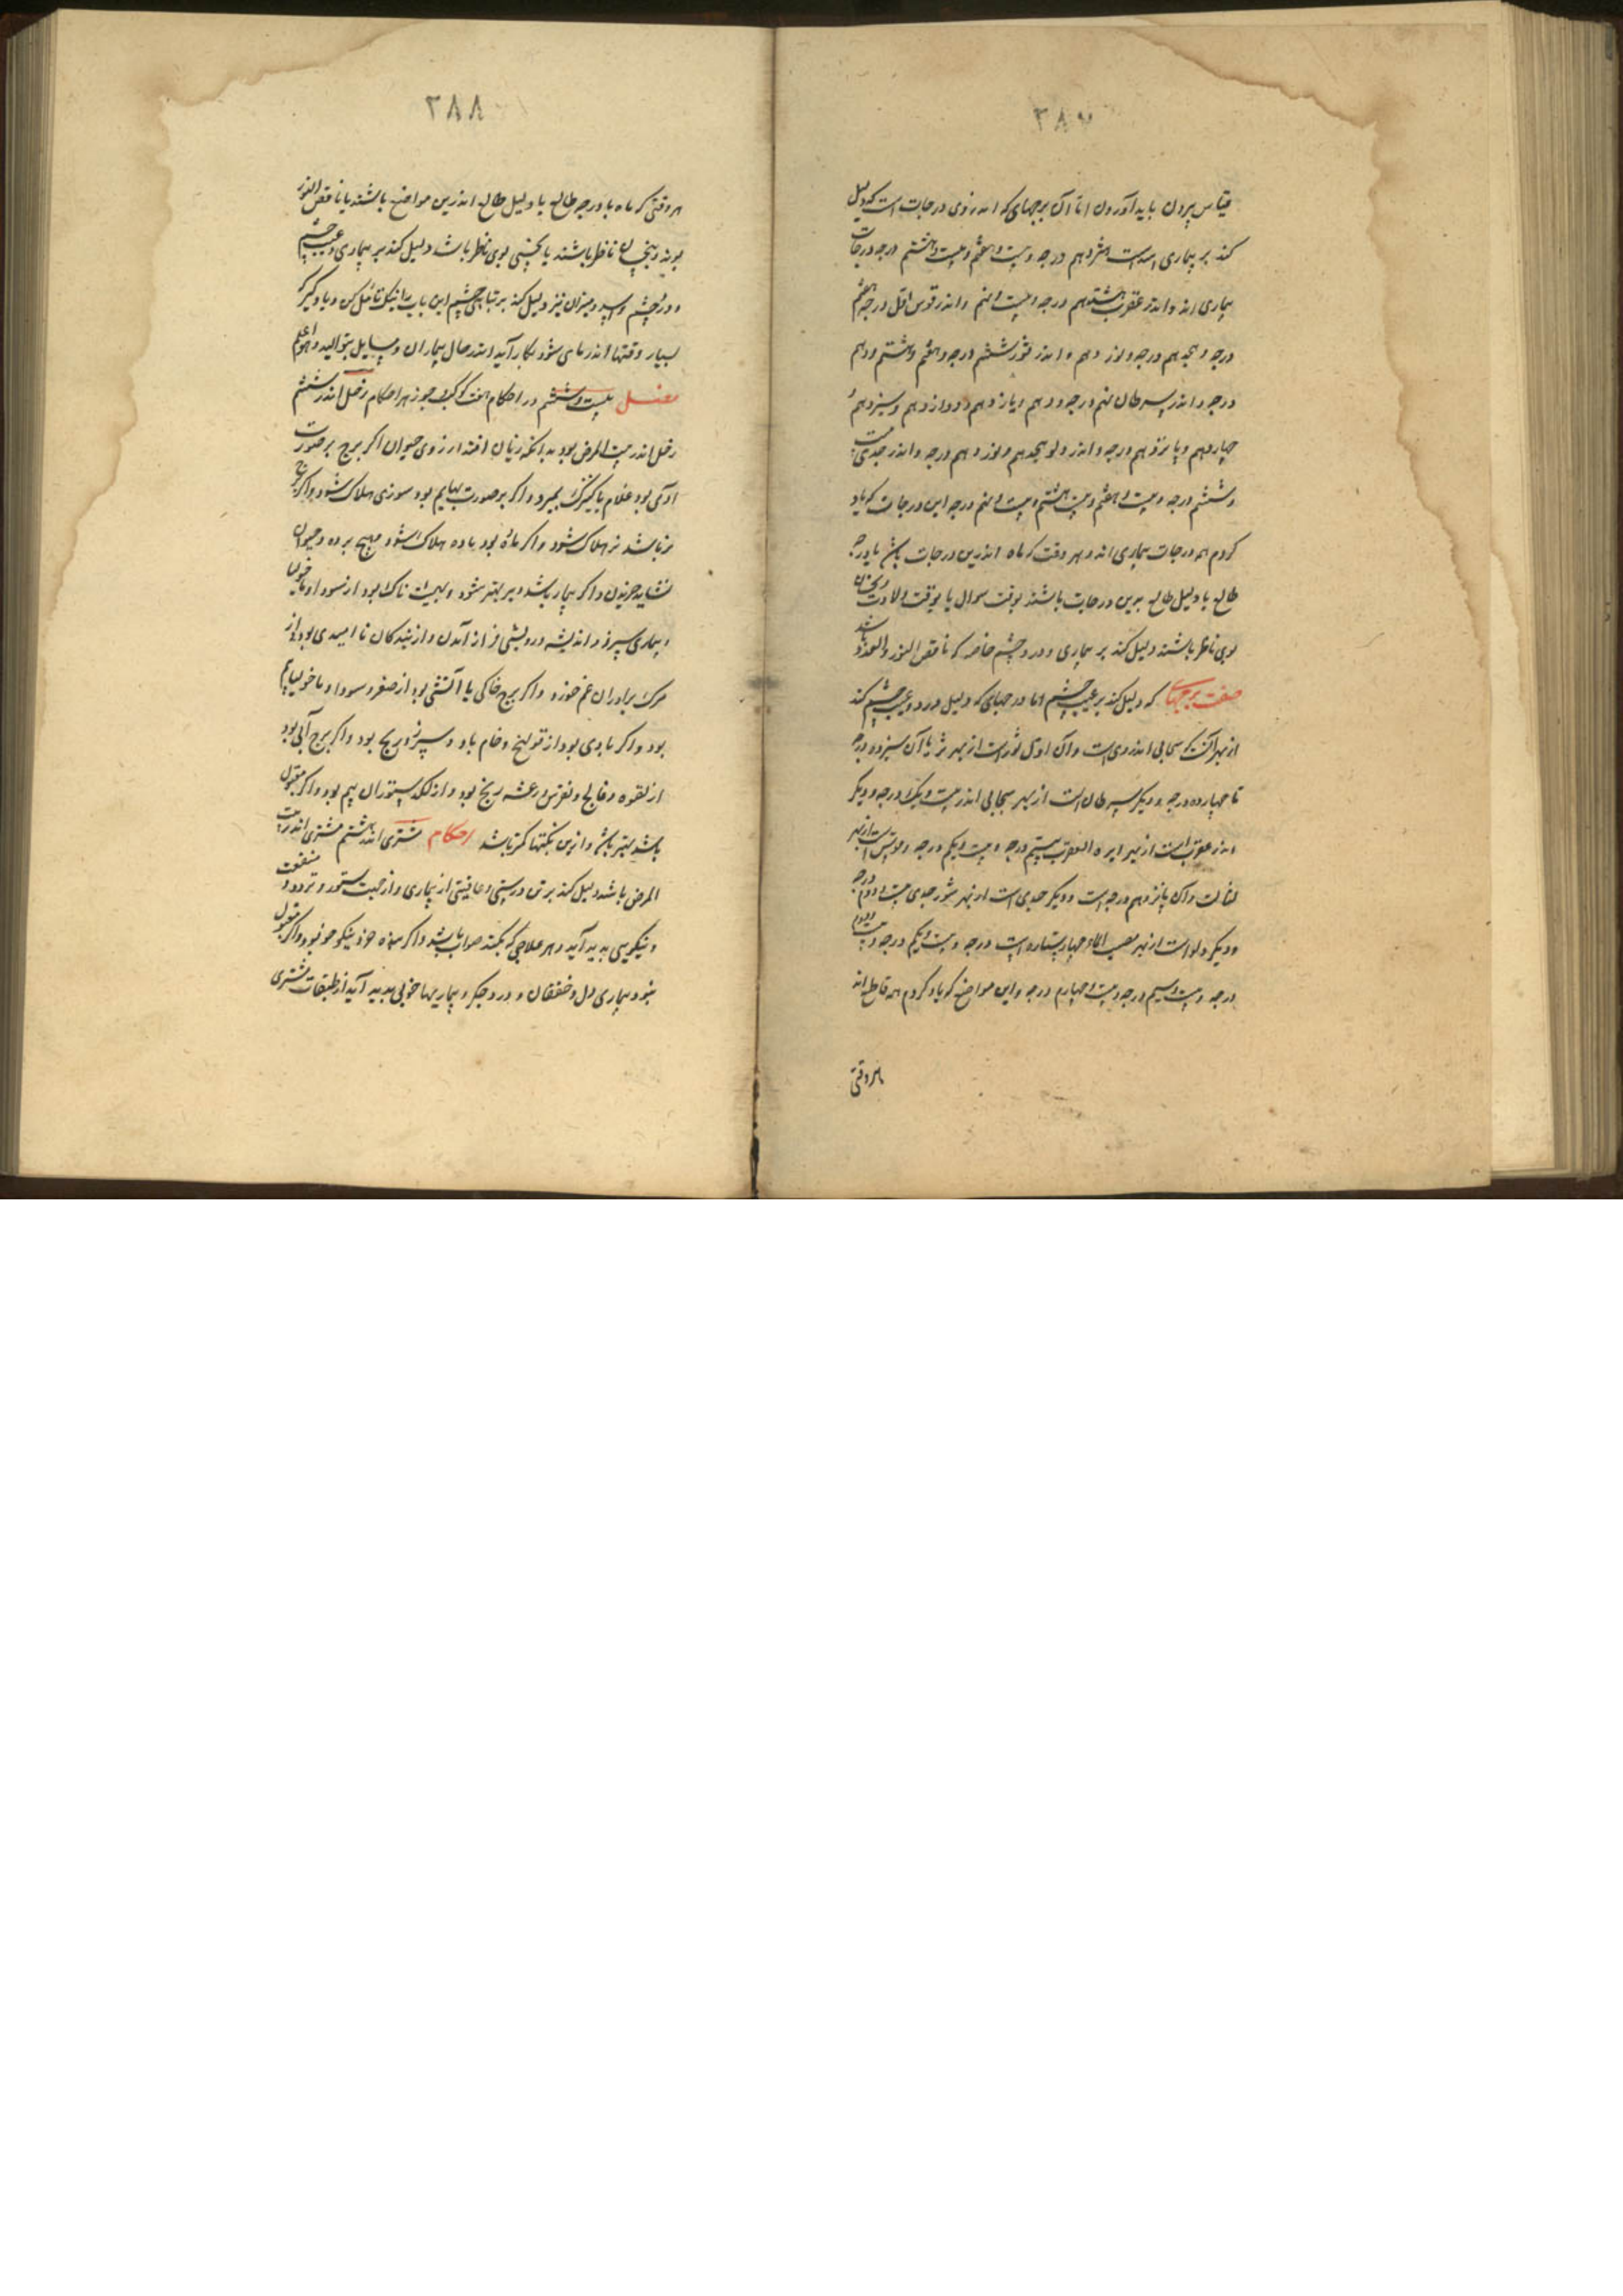 ۳۸۷
قیاس بیرون باید آوردن اما آن برجهای که اندر وی درجات است که دلیل
کند بر بیماری اسد است هژدهم درجه و بیست و هفتم و بیست و هشتم درجه درجات
بیماری اند و اندر عقرب هشتدهم درجه و بیست و نهم و اندر قوس اول درجه هفتم
درجه و هجدهم درجه و نوزدهم و اندر ثور ششم درجه و هفتم و هشتم و دهم
درجه و اندر سرطان نهم درجه و دهم و یازدهم و دوازدهم و سیزدهم
چهاردهم و پانزدهم درجه و اندر دلو هیجدهم و نوزدهم درجه و اندر جدی بیست
و ششم درجه و بیست و هفتم و بیست و هشتم و بیست و نهم درجه این درجات که یاد
کردم همه درجات بیماری اند و هر وقت که ماه اندرین درجات باشد یا درجه
طالع یا دلیل طالع برین درجات باشند بوقت سوال یا بوقت ولادت و نحسان
بوی ناظر باشند دلیل کند بر بیماری و درد چشم خاصه که ناقص النور والعدد باشد
صفت برجهای که دلیل کند بر عیب چشم اما درجهای که دلیل درد و عیب چشم کند
از بهر آنک سحابی اندر وی است و آن اول ثور است از بهر ثریا آن سیزده درجه
تا چهارده درجه و دیگر سرطان است از بهر سحابی اندر بیست و یک درجه و دیگر
اندر عقرب است از بهر ابره العقرب بیستم درجه و بیست و یکم درجه و قوس است از بهر
و آن پانزدهم درجه است و دیگر جدی است از بهر شور جدی بیست و دوم درجه
و دیگر دلو است از بهر مصب الماء چهار ستاره است درجه و بیست و یکم درجه و بیست و دوم
درجه و بیست و سیم درجه و بیست و چهارم درجه و این مواضع که یاد کردم همه قاطع اند
هر وقتی
۳۸۸
هر وقتی که ماه با درجه طالع یا دلیل طالع اندرین مواضع باشند یا ناقص النور
بوند و نحسان ناظر باشند یا نحسی بوی ناظر باشد دلیل کند بر بیماری و عیب چشم
و درد چشم و اسد و میزان نیز دلیل کند بر تباهی چشم این باب را نیک تامل کن و یاد گیر که
بسیار وقتها اندر می شود بکار آید اندر حال بیماران و مسایل موالید والله اعلم
فصل بیست و ششم در احکام هفت کوکب جوزهر احکام زحل اندر ششم
زحل اندر بیت المرض بود بدانکه زیان افتد از روی حیوان اگر برج بر صورت
آدمی بود غلام یا کنیزک بمیرد و اگر بر صورت بهایم بود ستوری هلاک شود و اگر برج
نر باشد نر هلاک شود و اگر ماده بود ماده هلاک شود و هیچ برده و حیوان
نشاید خریدن و اگر بیمار باشد دیر بهتر شود و بیمناک بود از سودا و مالیخولیا
و بیماری سپرز و اندیشه درویشی فراز آمدن و از بندگان ناامیدی بود و از
مرگ برادران غم خورد و اگر برج خاکی یا آتشی بود از صفرا و سودا و ماخولیا بیم
بود و اگر بادی بود از قولنج و خام باد و سپرز و رنج بود و اگر برج آبی بود
از لقوه و فالج و نقرس و رعشه رنج بود و از لگد ستوران بیم بود و اگر مقبول
باشد بهتر باشد و ازین نکبتها کمتر باشد احکام مشتری اندر ششم مشتری اندر بیت
المرض باشد دلیل کند بر تن درستی و عافیتی از بیماری و از جهت ستور و برده منفعت
و نیکویی پدید آید و هر علاجی که بکند صواب باشد و اگر میوه خورد نیکو بود و اگر مقبول
نبود بیماری دل و خفقان و درد جگر و بیماریها خونی پدید آید از طبقات مشتری